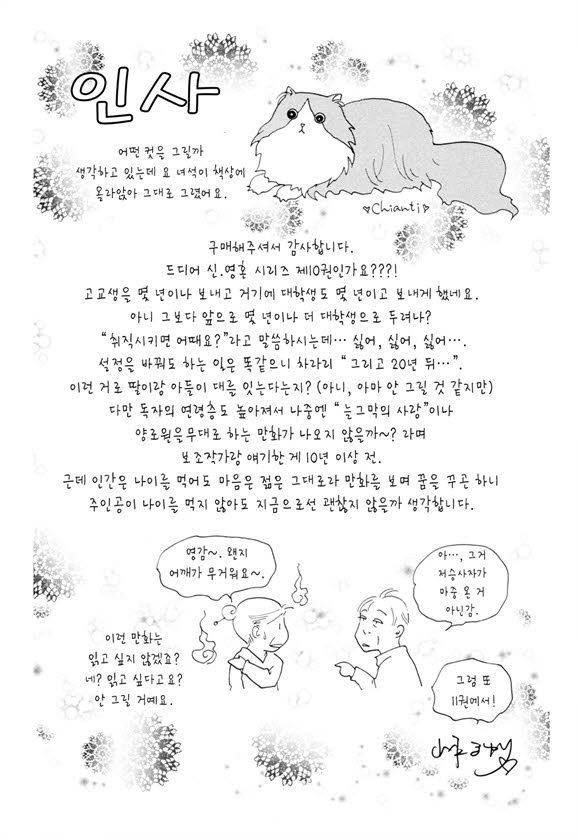 인사
어떤 컷을 그릴까
생각하고 있는데 요 녀석이 책상에
올라앉아 그대로 그렸어요.
♡Chianti♡
구매해주셔서 감사합니다.
드디어 신.영혼 시리즈 제10권인가요???!
고교생을 몇 년이나 보내고 거기에 대학생도 몇 년이고 보내게 했네요.
아니 그보다 앞으로 몇 년이나 더 대학생으로 두려나?
“취직시키면 어때요?”라고 말씀하시는데… 싫어, 싫어, 싫어….
설정을 바꿔도 하는 일은 똑같으니 차라리 “ 그리고 20년 뒤…”.
이런 거로 딸이랑 아들이 대를 잇는다는지? (아니, 아마 안 그릴 것 같지만)
다만 독자의 연령층도 높아져서 나중엔 “늘그막의 사랑”이나
양로원을무대로 하는 만화가 나오지 않을까~? 라며
보조작가랑 얘기한 게 10년 이상 전.
근데 인간은 나이를 먹어도 마음은 젊은 그대로라 만화를 보며 꿈을 꾸곤 하니
주인공이 나이를 먹지 않아도 지금으로선 괜찮지 않을까 생각합니다.
영감~. 왠지
어깨가 무거워요~.
아…, 그거
저승사자가
마중 온 거
아닌감.
이런 만화는
읽고 싶지 않겠죠?
네? 읽고 싶다고요?
안 그릴 거예요.
그럼 또
11권에서!